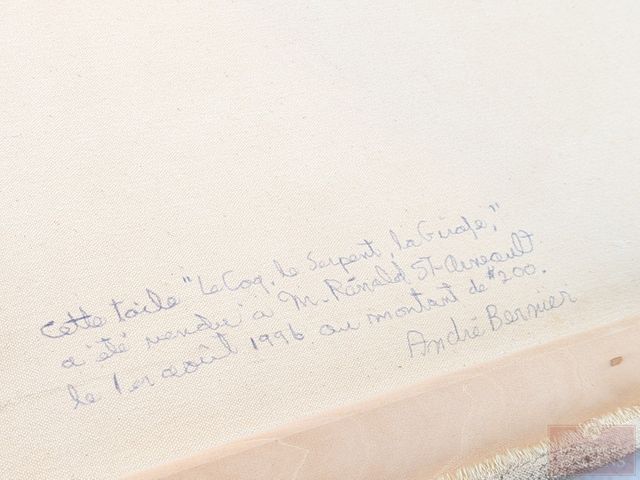 Cette toile "Le Coq, le Serpent, la Girafe,"
a été vendu à M. Rénald St-Arneault
le 1er août 1996 au montant de $200.
André Bernier